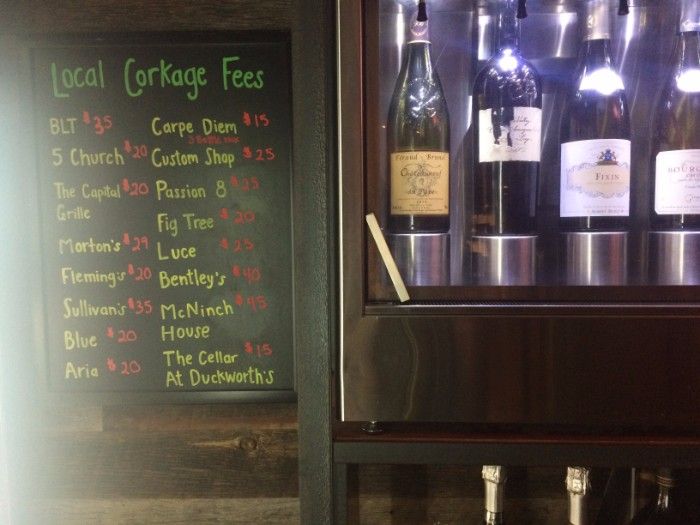 Local Corkage Fees
BLT $35
5 Church $20
The Capital $20
Grille
Morton's $29
Fleming's $20
Sullivan's $35
Blue $20
Aria $20
Carpe Diem $15
Custom Shop $25
Passion 8 $25
Fig Tree $20
Luce $25
Bentley's $40
McNinch $45
House
The Cellar $15
At Duckworth's
FIXIS